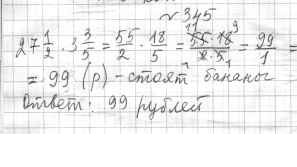 № 345
27 1/2 · 3 3/5 = 55/2 · 18/5 = 55 · 18/2 · 5 = 99/1 =
= 99 (р) - стоят бананы
Ответ: 99 рублей